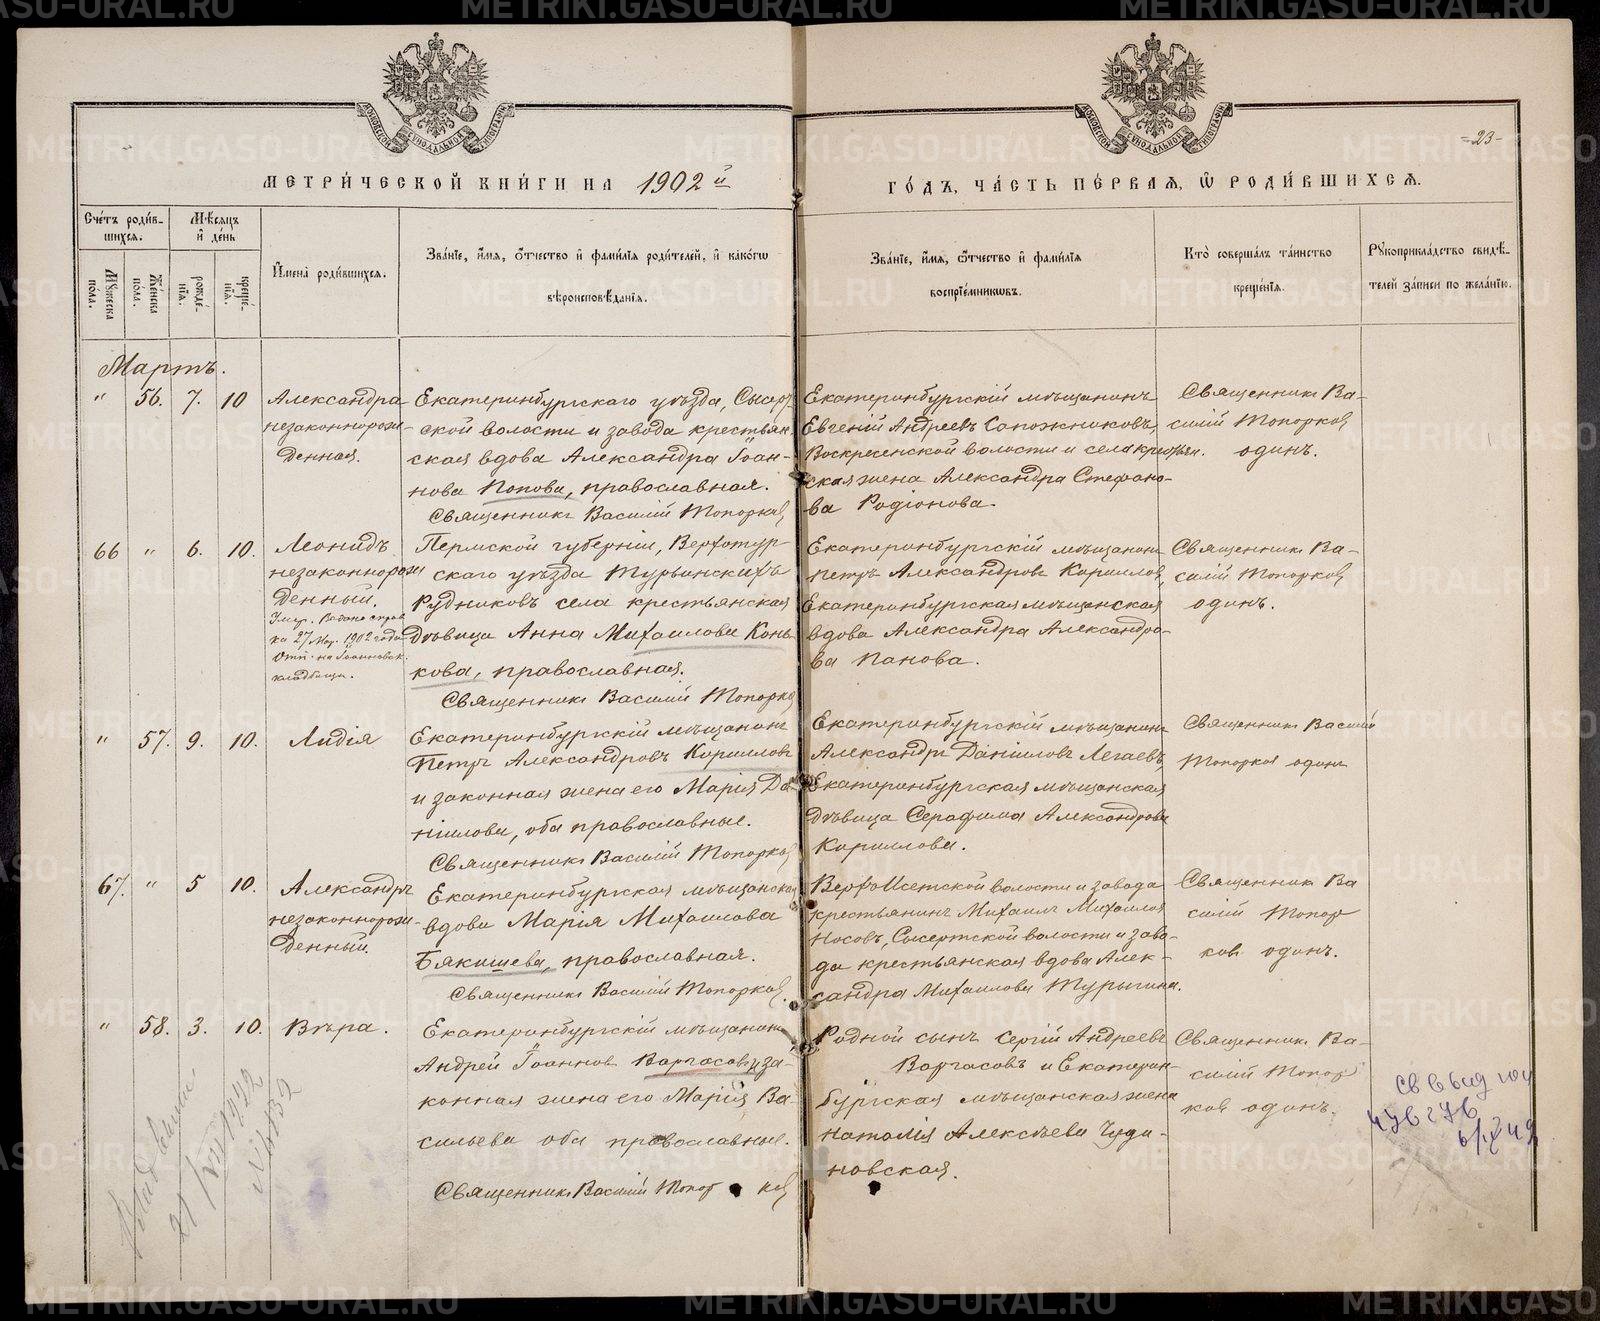 METRIKI.GASO-URAL.RU
МОСКОВСКОЙ СѴНОДАЛЬНОЙ ТИПОГРАФІИ
МОСКОВСКОЙ СѴНОДАЛЬНОЙ ТИПОГРАФІИ
-23-
МЕТРИ́ЧЕСКОЙ КНИ́ГИ НА 1902 й
ГО́ДЪ, ЧА́СТЬ ПЕ́РВАѦ, Ѡ РОДИ́ВШИХСѦ.
Сче́тъ роди́в-
шихсѧ.
Мѣ́сѧцъ
и҆ де́нь
Мꙋжеска по́ла.
Же́нска по́ла.
рожде́-нїѧ.
креще́-нїѧ.
И҆мена̀ роди́вшихсѧ.
Зва́нїе, и҆́мѧ, ѻ҆́тчество и҆ фами́лїѧ роди́телей, и҆ како́гѡ
вѣроисповѣ́данїѧ.
Зва́нїе, и҆́мѧ, ѻ҆́тчество и҆ фами́лїѧ
воспрїе́мникѡвъ.
Кто̀ соверша́лъ та́инство
креще́нїѧ.
Рꙋкоприкла́дство свидѣ́-
телей за́писи по жела́нїю.
Мартъ.
" 56. 7. 10
Александра
незаконнорож-
денная.
Екатеринбургскаго уѣзда, Сысерт-
ской волости и завода крестьян-
ская вдова Александра Іоан-
нова Попова, православная.
Священникъ Василій Топорков
Екатеринбургскій мѣщанинъ
Евгеній Андреевъ Сапожниковъ,
Воскресенской волости и села крестьян-
ская жена Александра Стефано-
ва Родіонова.
Священникъ Ва-
силій Топорков
одинъ.
66 " 6. 10.
Леонидъ
незаконнорож
денный.
Умер. Выдана справ
ка 27 Мар. 1902 года
Отп. на Іоанновск.
кладбищи.
Пермской губерніи, Верхотур
скаго уѣзда Турьинскихъ
Рудниковъ села крестьянская
дѣвица Анна Михаилова Конь-
кова, православная.
Священникъ Василій Топорков
Екатеринбургскій мѣщанинъ
Петръ Александровъ Кириллов,
Екатеринбургская мѣщанская
вдова Александра Александро-
ва Панова.
Священникъ Ва-
силій Топорков
одинъ.
" 57. 9. 10.
Лидія
Екатеринбургскій мѣщанинъ
Петръ Александровъ Кирилловъ
и законная жена его Марія Да-
ніилова, оба православные.
Священникъ Василій Топорков
Екатеринбургскій мѣщанинъ
Александръ Даніиловъ Легаевъ,
Екатеринбургская мѣщанская
дѣвица Серафима Александрова
Кириллова.
Священникъ Василій
Топорков одинъ
67. " 5 10.
Александръ
незаконнорож-
денный.
Екатеринбургская мѣщанская
вдова Марія Михаилова
Бякишева, православная.
Священникъ Василій Топорков
ВерхоИсетской волости и завода
крестьянинъ Михаилъ Михаилов
Носовъ, Сысертской волости и заво-
да крестьянская вдова Алек-
сандра Михаилова Турыгина.
Священникъ Ва
силій Топор
ков одинъ.
" 58. 3. 10.
Вѣра.
Екатеринбургскій мѣщанинъ
Андрей Іоаннов Варгасовъ и за-
конная жена его Марія Ва-
сильева оба православные.
Священникъ Василій Топор ков
Родной сынъ Сергій Андреевъ
Варгасовъ и Екатерин-
бургская мѣщанская жена
Наталія Алексѣева Чуди-
новская.
Священникъ Ва-
силій Топор
ков одинъ.